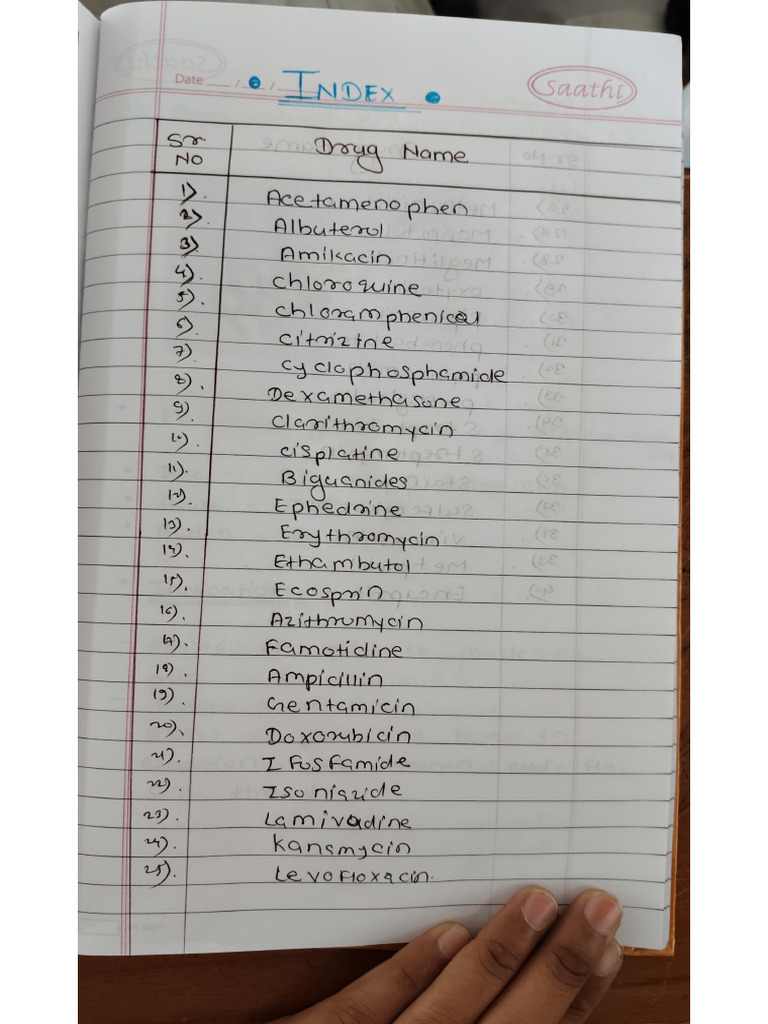 Date __ / __ /
INDEX
Saathi
Sr. NO Drug Name
1). Acetamenophen
2). Albuterol
3). Amikacin
4). Chloroquine
5). Chloramphenicol
6). Citriztne
7). Cyclophosphamide
8). Dexamethasone
9). Clarithromycin
10). Cisplatine
11). Biguanides
12). Ephedrine
13). Erythromycin
14). Ethambutol
15). Ecosprin
16). Azithromycin
17). Famotidine
18). Ampicillin
19). Gentamicin
20). Doxorubicin
21). Ifosfamide
22). Isoniazide
23). Lamivadine
24). Kanamycin
25). Levofloxacin.